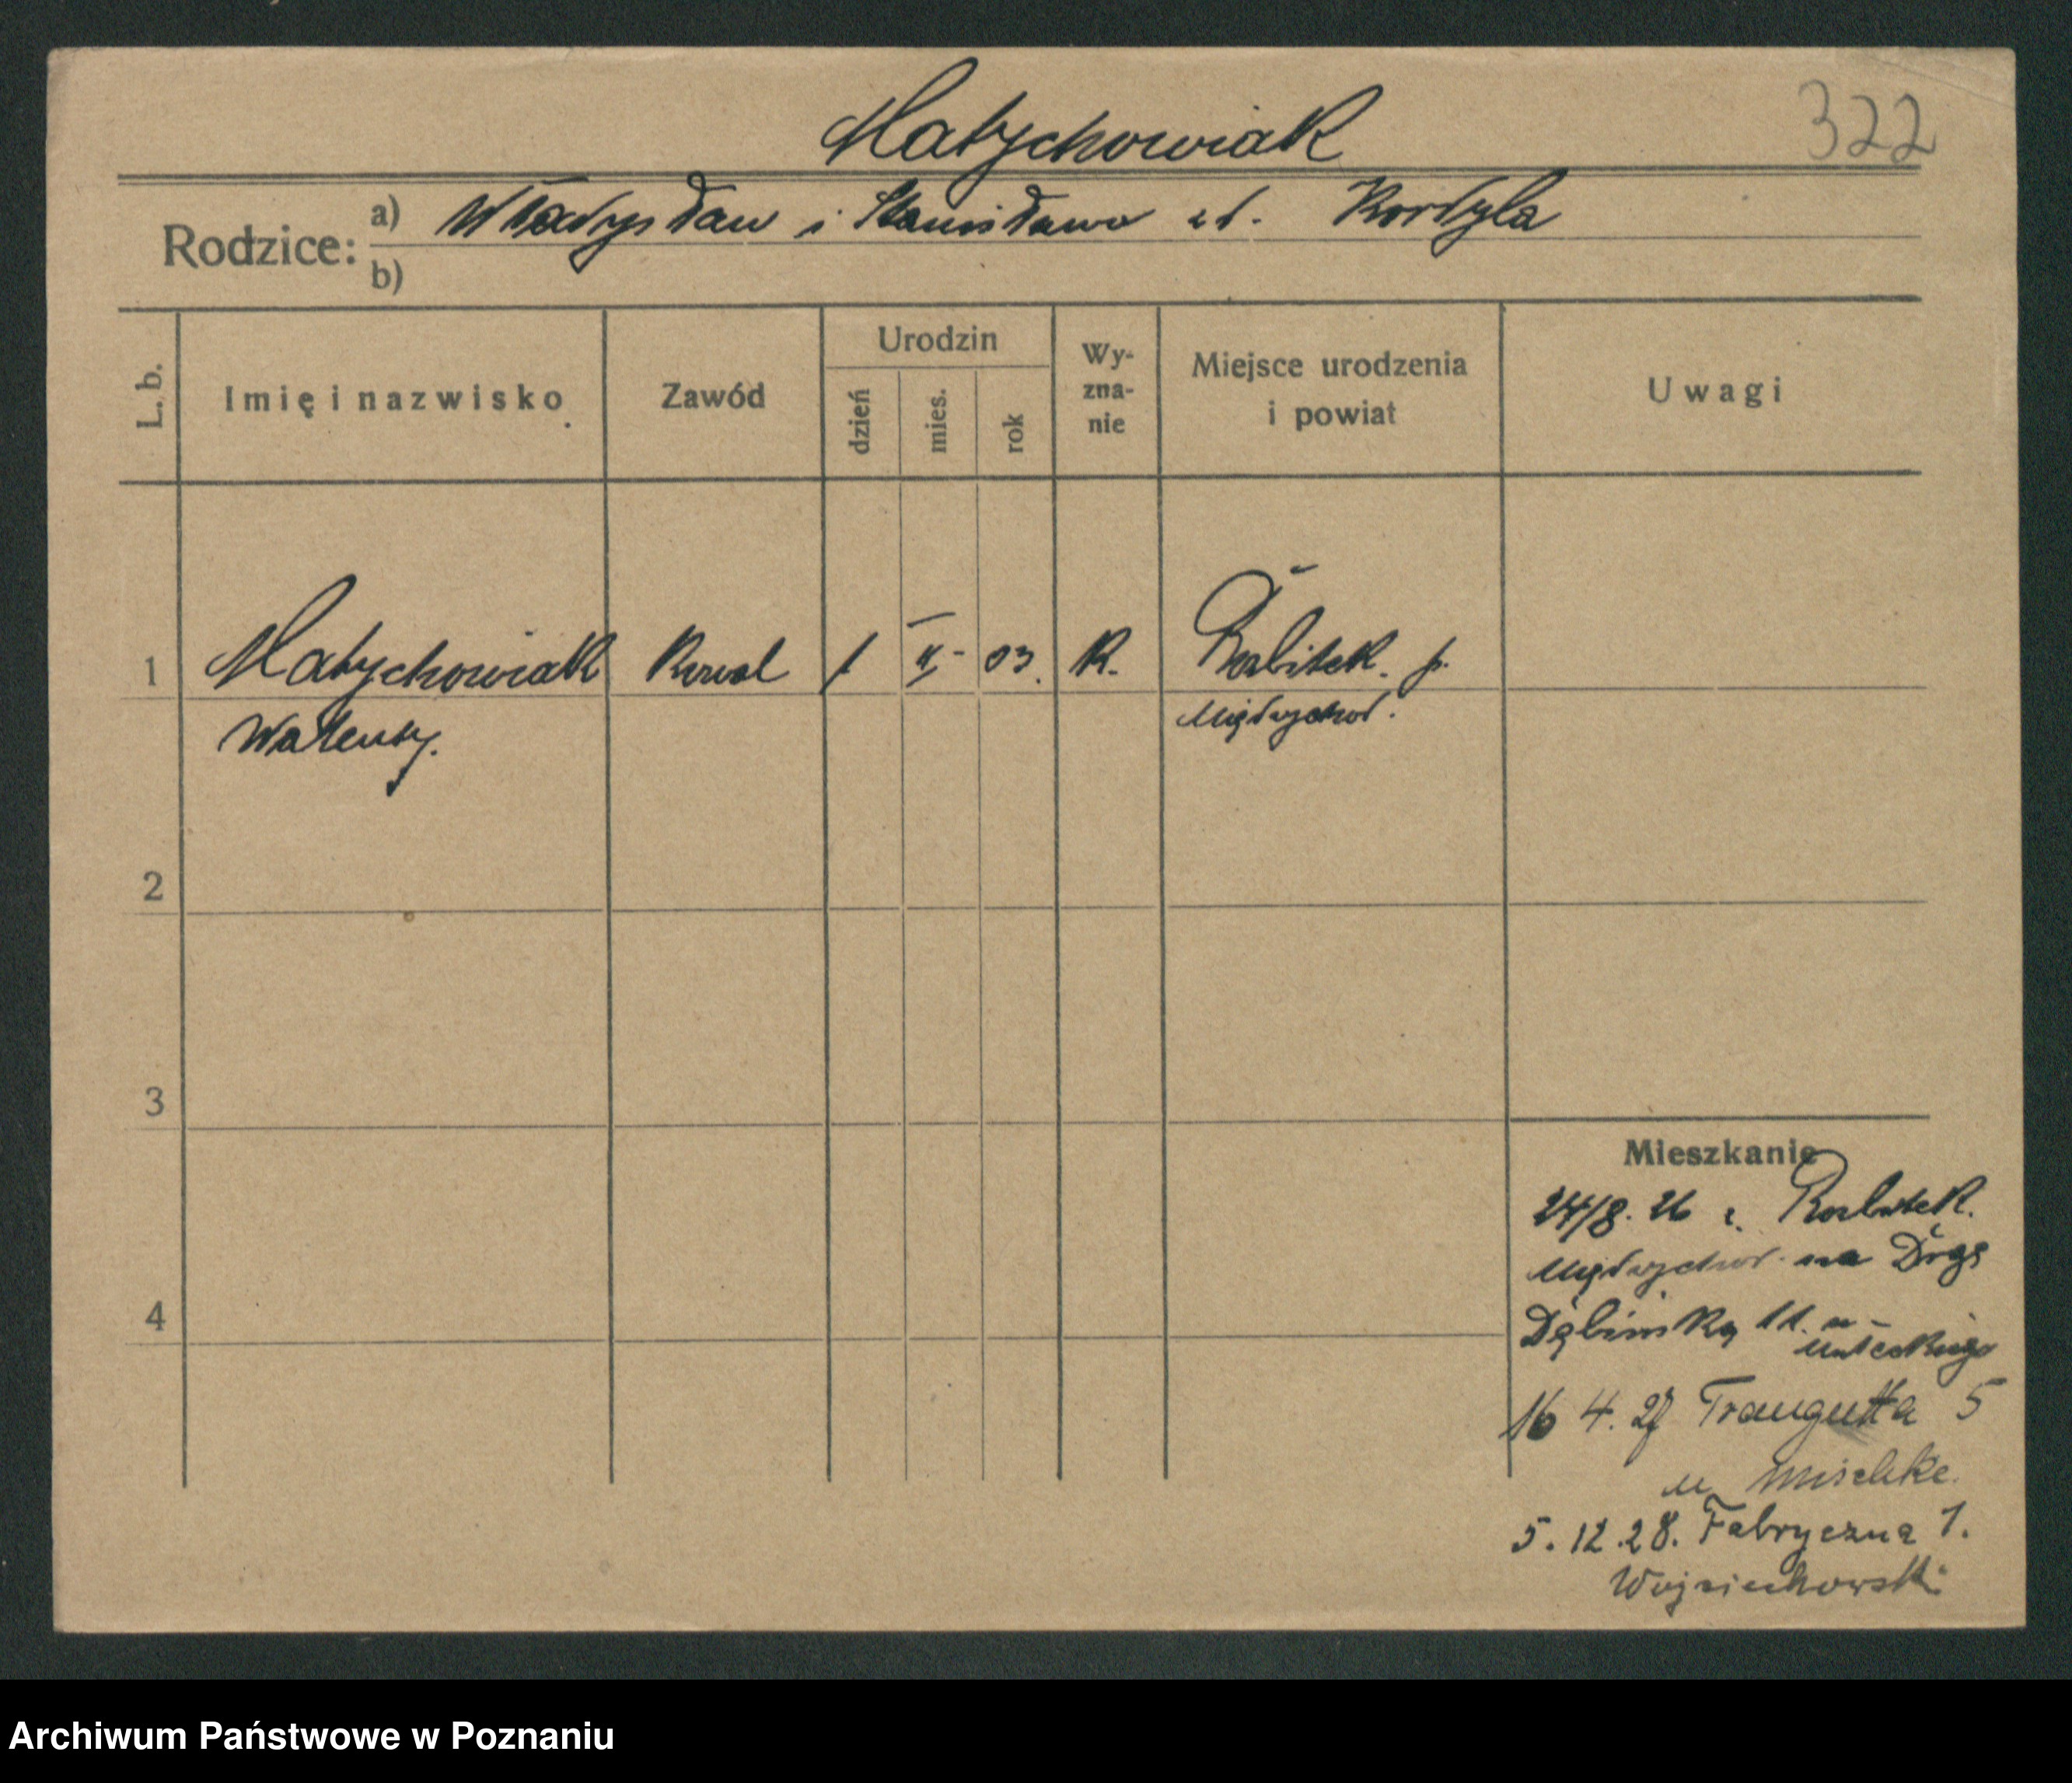 Matychowiak
322
Rodzice: a) Władysław i Stanisława zd. Kordyla
b)
L. b.
Imię i nazwisko
Zawód
Urodzin
dzień
mies.
rok
Wy-
zna-
nie
Miejsce urodzenia
i powiat
Uwagi
1 Matychowiak Kowal 1 II. 03. K. Rozbitek. p.
Walenty. Międzychod.
2
3
Mieszkanie
24/8. 26 z. Rozbitek.
Międzychod. na Drogę
4
Dębińską 11. u
16 4. 27 Traugutta 5
u Mischke.
5. 12. 28. Fabryczna 1.
Wojciechowski
Archiwum Państwowe w Poznaniu